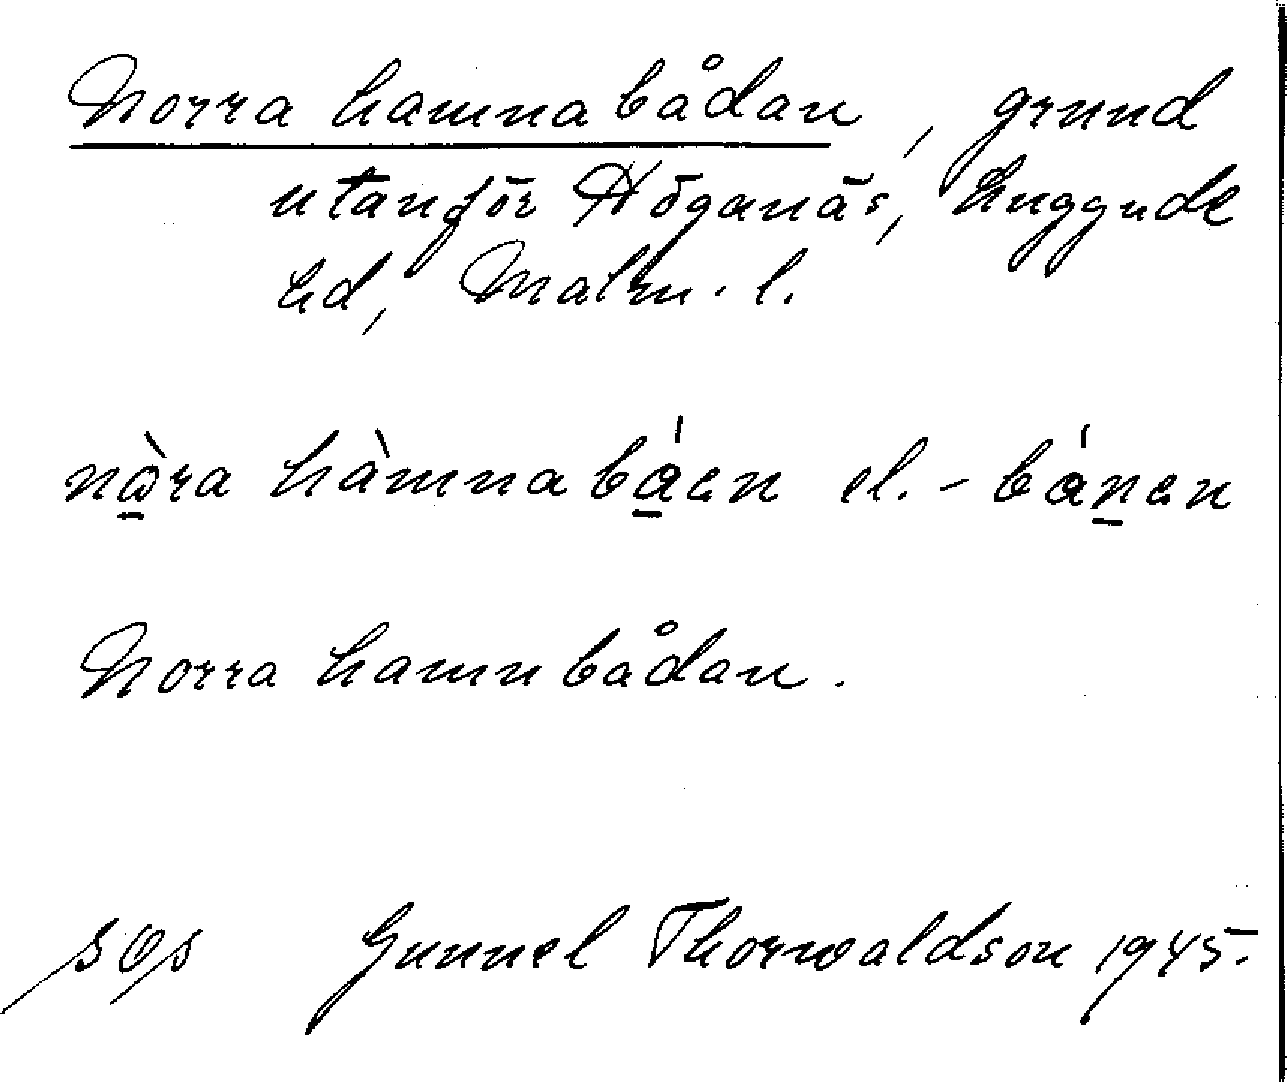 Norra hamnabådan, grund
utanför Höganäs, Luggude
hd, Malm. l.
nὼ̱ra hàmnabá̱ɛn el. -báṉɛn
Norra hamnbådan.
sOs Gunnel Thorwaldson 1945.